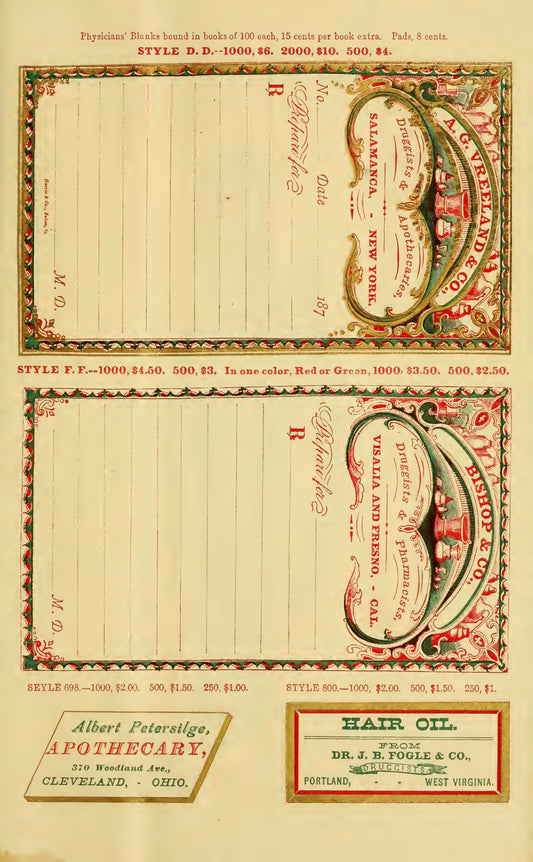 Physicians' Blanks bound in books of 100 each, 15 cents per book extra. Pads, 8 cents.
STYLE D. D.--1000, $6. 2000, $10. 500, $4.
A. G. VREELAND & CO.,
Druggists & Apothecaries,
SALAMANCA, - NEW YORK.
No. Date 187
Prepare for
R
M. D.
STYLE F. F.--1000, $4.50. 500, $3. In one color, Red or Green, 1000, $3.50. 500, $2.50.
BISHOP & CO.,
Druggists & Pharmacists,
VISALIA AND FRESNO, - CAL.
Prepare for
R
M. D.
SEYLE 698.—1000, $2.00. 500, $1.50. 250, $1.00.
STYLE 800.—1000, $2.00. 500, $1.50. 250, $1.
Albert Petersilge,
APOTHECARY,
370 Woodland Ave.,
CLEVELAND, - OHIO.
HAIR OIL.
FROM
DR. J. B. FOGLE & CO.,
DRUGGISTS,
PORTLAND, - - WEST VIRGINIA.